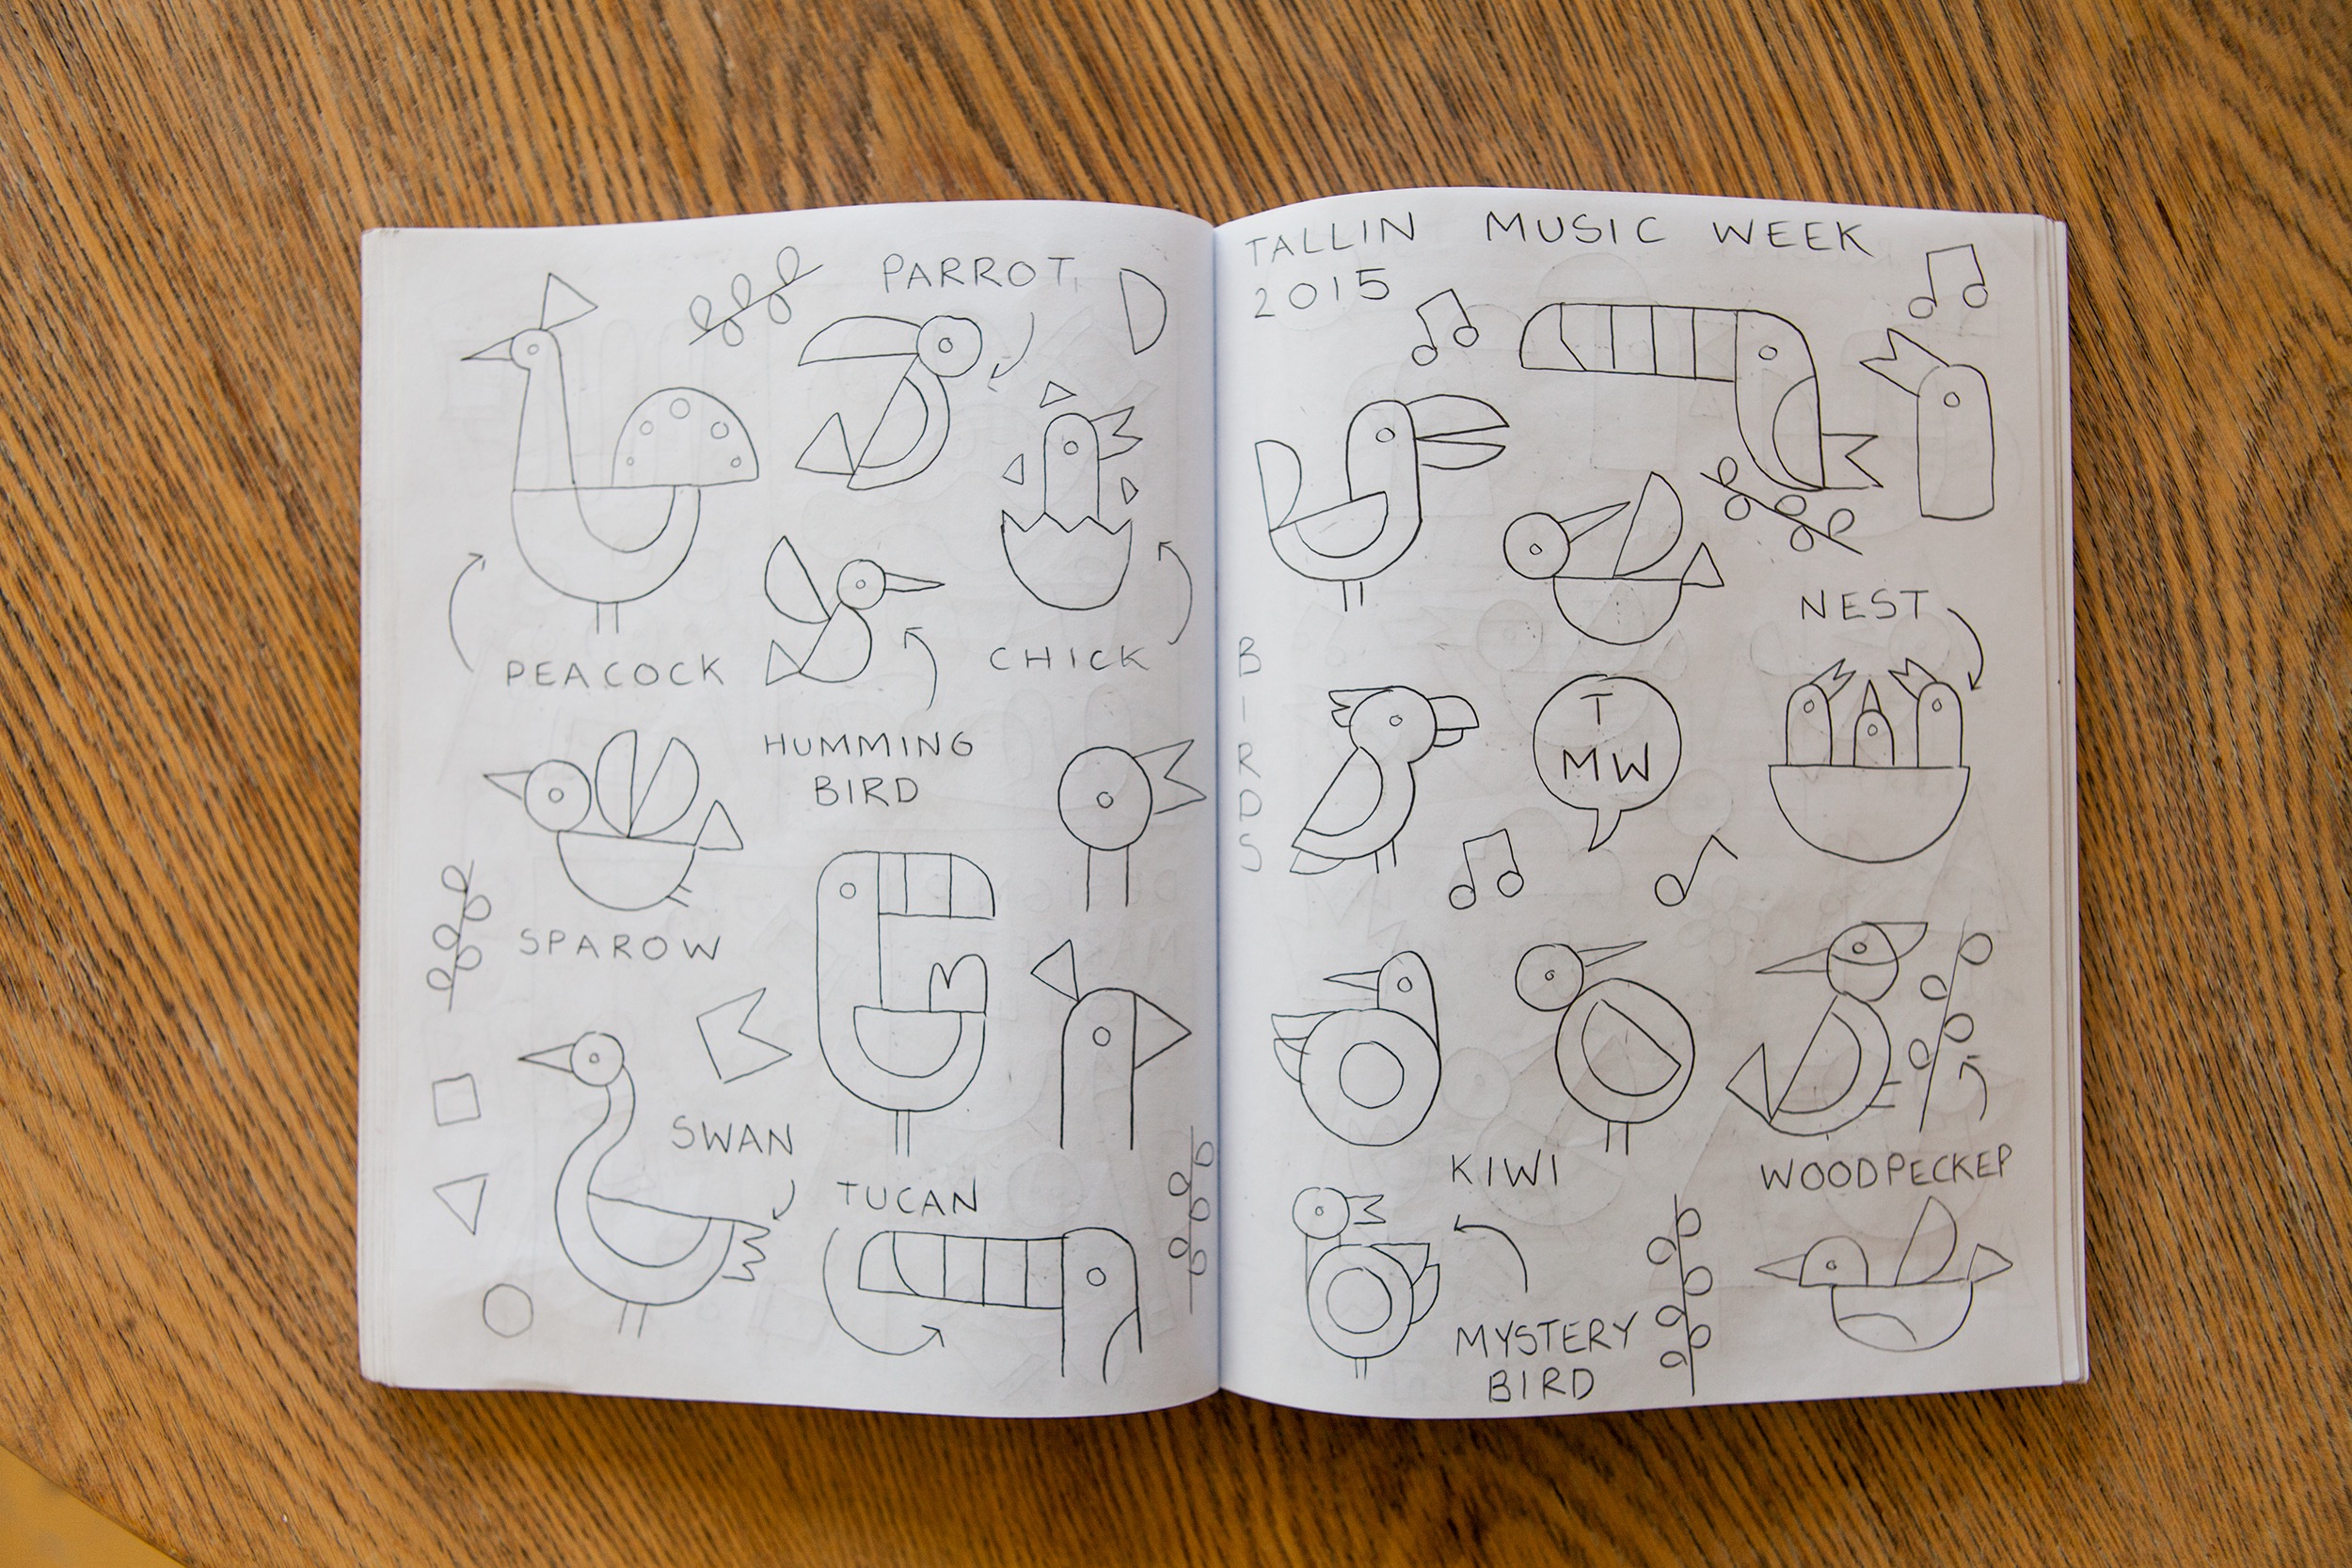 PARROT
PEACOCK
CHICK
HUMMING
BIRD
SPAROW
SWAN
TUCAN
TALLIN MUSIC WEEK
2015
NEST
BIRDS
T
MW
KIWI
WOODPECKER
MYSTERY
BIRD